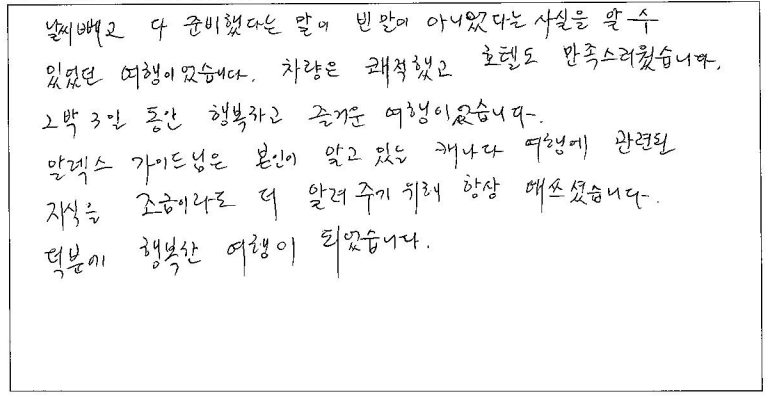 날씨빼고 다 준비했다는 말이 빈말이 아니었다는 사실을 알 수
있었던 여행이었습니다. 차량은 쾌적했고 호텔도 만족스러웠습니다.
2박 3일 동안 행복하고 즐거운 여행이었습니다.
알렉스 가이드님은 본인이 알고 있는 캐나다 여행에 관련된
지식을 조금이라도 더 알려 주기 위해 항상 애쓰셨습니다.
덕분에 행복한 여행이 되었습니다.